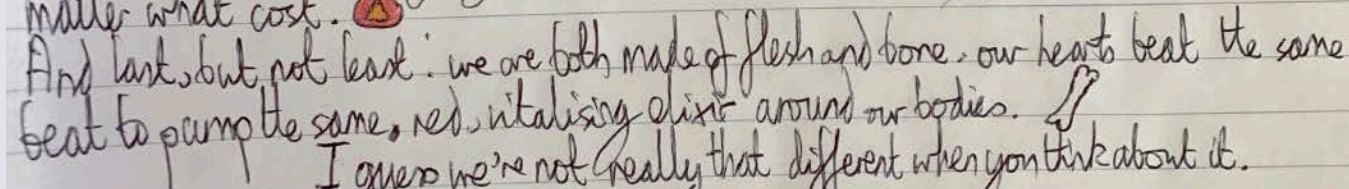 matter what cost.
And last, but not least: we are both made of flesh and bone, our hearts beat the same
beat to pump the same, red, vitalising elixir around our bodies.
I guess we're not really that different when you think about it.